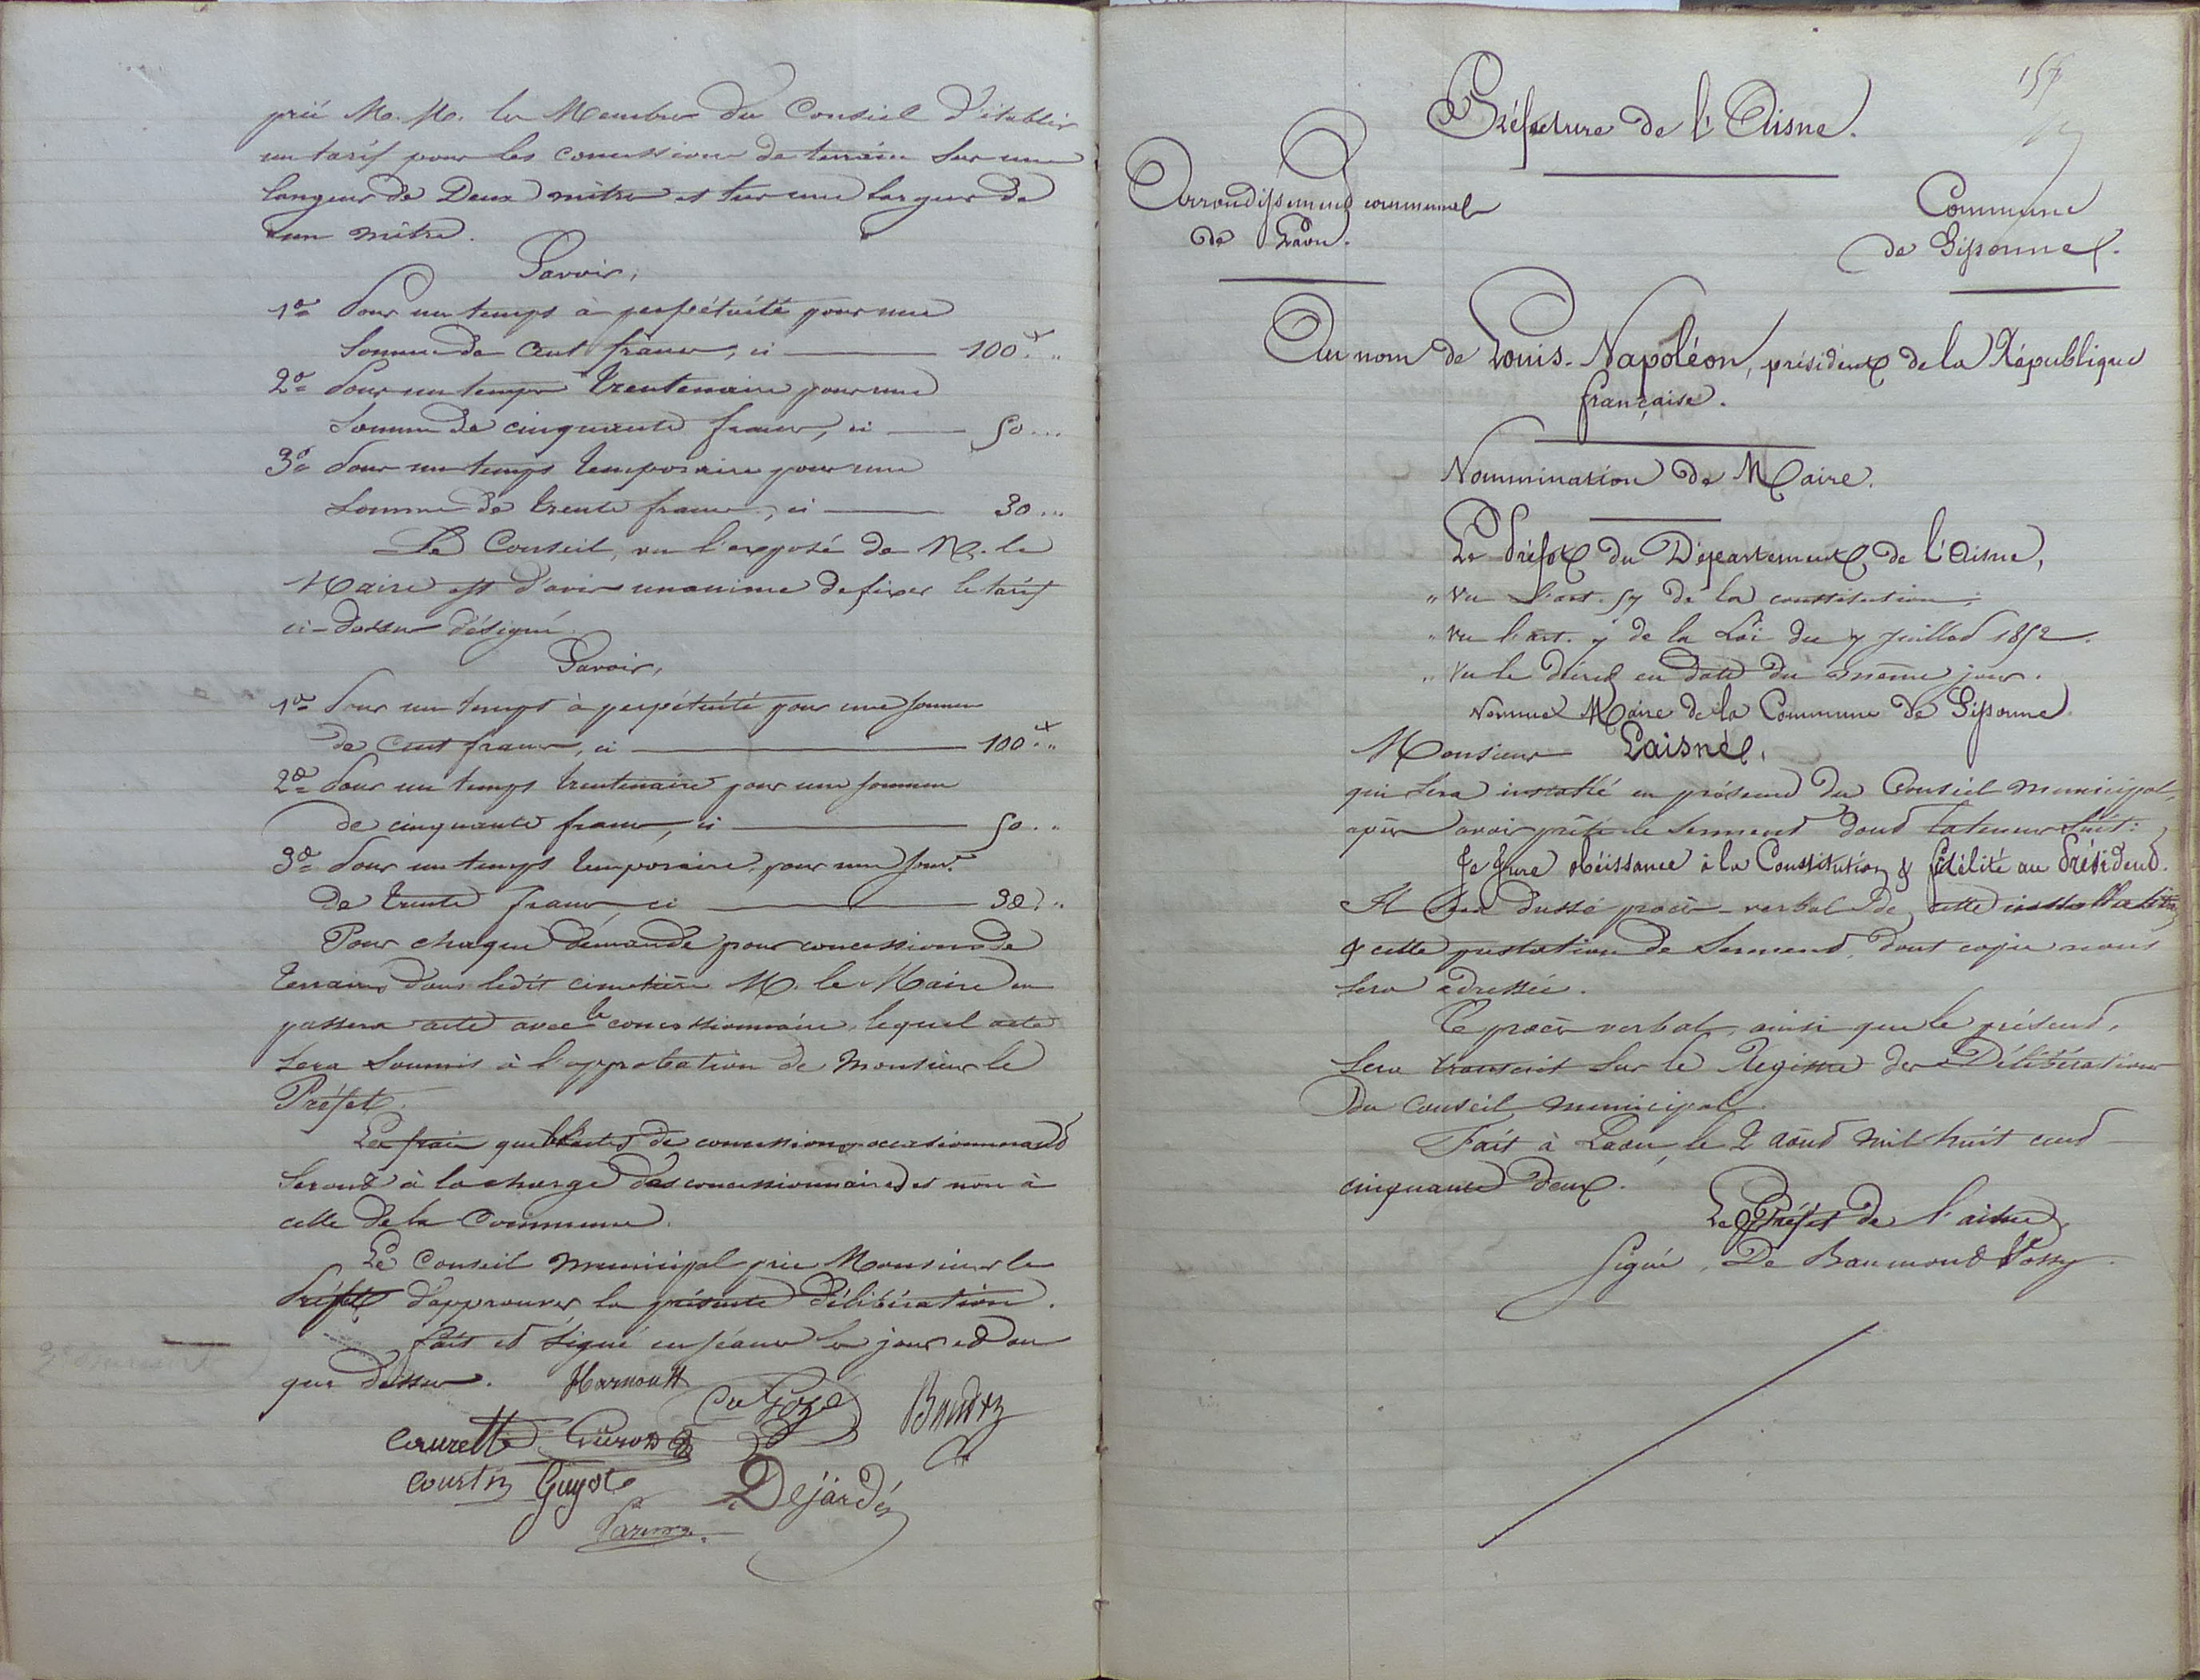 prié M. M. les Membres du Conseil d'établir
un tarif pour les concessions de terrain sur une
longueur de Deux mètres et sur une largeur de
un mètre.
Savoir,
1º Pour un temps à perpétuité pour une
Somme de Cent francs, ci — 100.f "
2º Pour un temps trentenaire pour une
Somme de cinquante francs, ci — 50 ...
3º Pour un temps temporaire pour une
Somme de trente francs, ci — 30 ...
Le Conseil, vu l'exposé de M. le
Maire est d'avis unanime de fixer le tarif
ci-dessus désigné.
Savoir,
1º Pour un temps à perpétuité pour une somme
de Cent francs, ci — 100.f "
2º Pour un temps trentenaire pour une somme
de cinquante francs, ci — 50 . "
3º Pour un temps temporaire pour une som.e
de trente francs, ci — 30 . "
Pour chaque demande pour concessions de
terrains dans ledit cimetière M. le Maire en
passera acte avec le concessionnaire, lequel acte
sera soumis à l'approbation de Monsieur le
Préfet.
Les frais que les actes de concessions occasionneraient
seront à la charge des concessionnaires et non à
celle de la Commune.
Le Conseil municipal prie Monsieur le
Préfet d'approuver la présente délibération.
fait et signé en séance les jour et an
que dessus. Harnoult
Baudez
Courtin Guyot
Dejardin
157
Préfecture de l'Aisne.
Arrondissement communal
de Laon.
Commune
de Sissonne.
Au nom de Louis-Napoléon, président de la République
française.
Nommination de Maire.
Le Préfet du Département de l'Aisne,
" Vu l'art. 57 de la constitution ;
" Vu l'art. 7 de la Loi du 7 Juillet 1852.
" Vu le décret en date du même jour.
Nomme Maire de la Commune de Sissonne
Monsieur Laisné.
qui sera installé en présence du Conseil municipal,
après avoir prêté le serment dont la teneur suit :
Je Jure obéissance à la Constitution & fidélité au Président.
Il sera dressé procès-verbal de cette installation
& cette prestation de serment, dont copie nous
sera adressée.
Ce procès verbal, ainsi que le présent,
sera transcrit sur le Registre des Délibérations
du Conseil municipal.
Fait à Laon, le 2 août mil huit cent
cinquante deux.
Le Préfet de l'aisne,
Signé, De Beaumont Vassy.